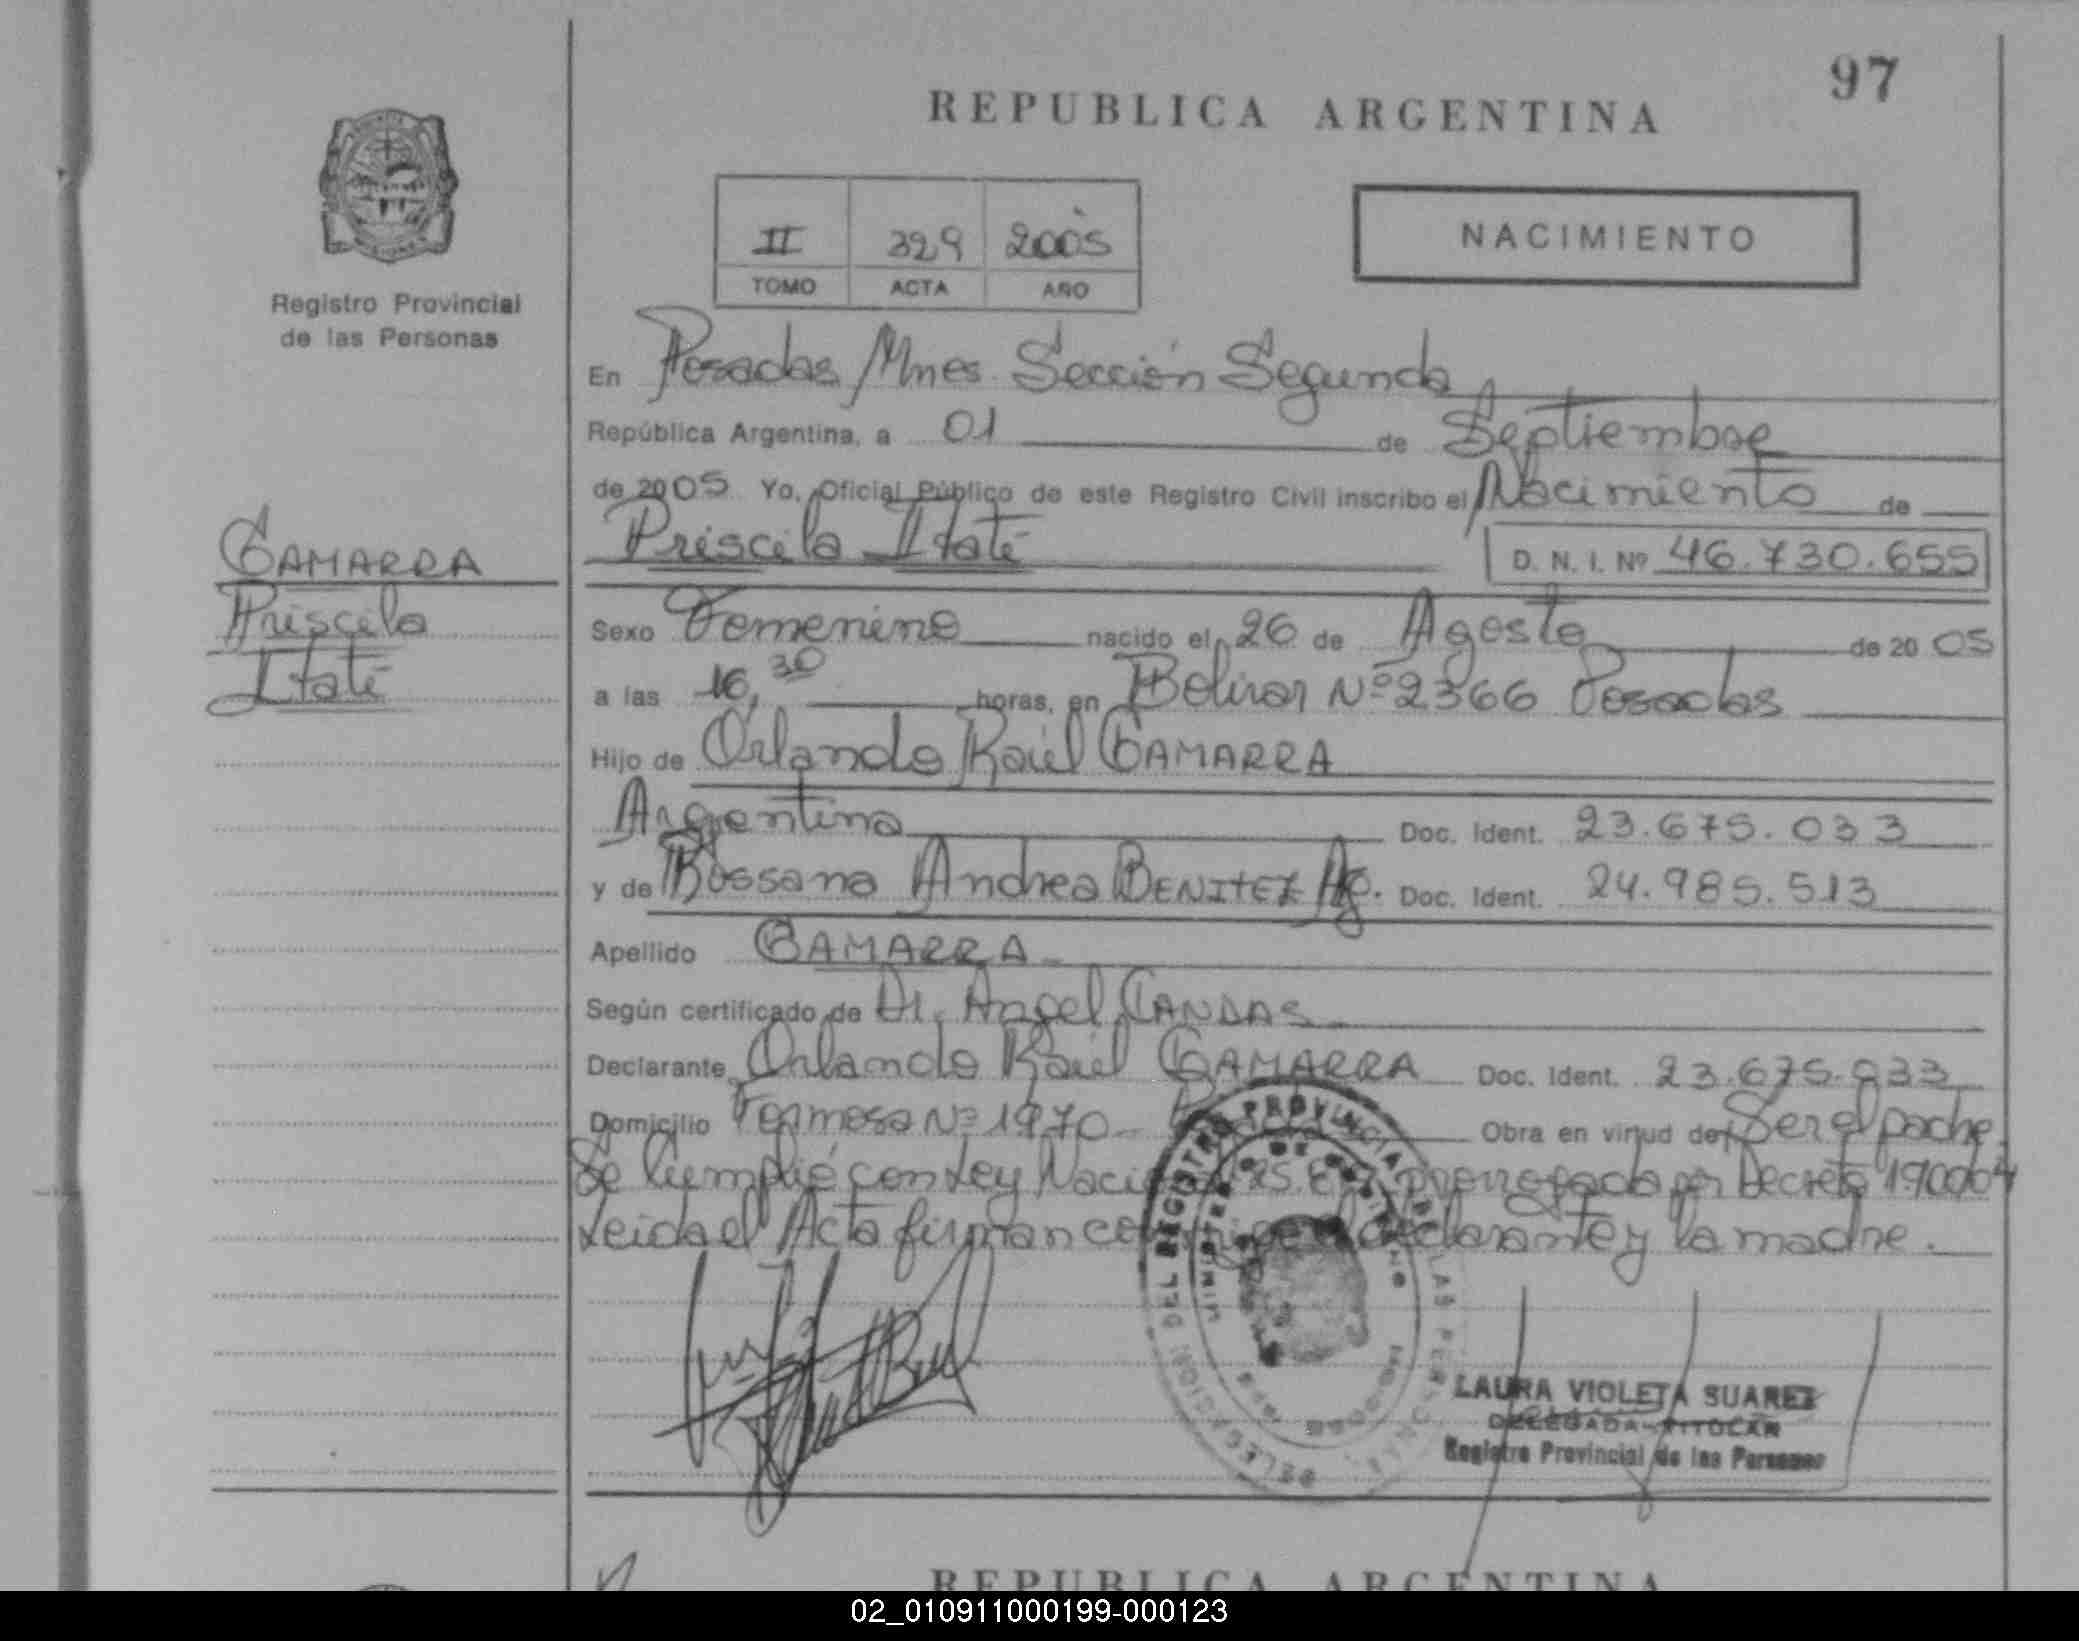 97
REPUBLICA ARGENTINA
Registro Provincial
de las Personas
II 329 2005
TOMO ACTA AÑO
NACIMIENTO
En Posadas, Mnes. Sección Segunda
República Argentina, a 01 de Septiembre
de 2005 Yo, Oficial Público de este Registro Civil inscribo el Nacimiento de
Priscila Itatí
D. N. I. Nº 46.730.655
GAMARRA
Priscila
Itatí
Sexo Femenino nacido el 26 de Agosto de 20 05
a las 16,30 horas, en Bolivar Nº 2366 Posadas
Hijo de Orlando Raúl GAMARRA
Argentina Doc. Ident. 23.675.033
y de Rossana Andrea BENITEZ Ag. Doc. Ident. 24.985.513
Apellido GAMARRA
Según certificado de Dr. Angel CANDAS
Declarante Orlando Raúl GAMARRA Doc. Ident. 23.675.033
Domicilio Formosa Nº 1970 - Obra en virtud de Ser el padre.
Se Cumplió con Ley prorrogada por Decreto
Leida el Acta firman el declarante y la madre.
DELEGACION DEL REGISTRO PROVINCIAL DE LAS PERSONAS
MINISTERIO DE GOBIERNO
POSADAS
LAURA VIOLETA SUAREZ
DELEGADA TITULAR
Registro Provincial de las Personas
REPUBLICA ARGENTINA
02_010911000199-000123